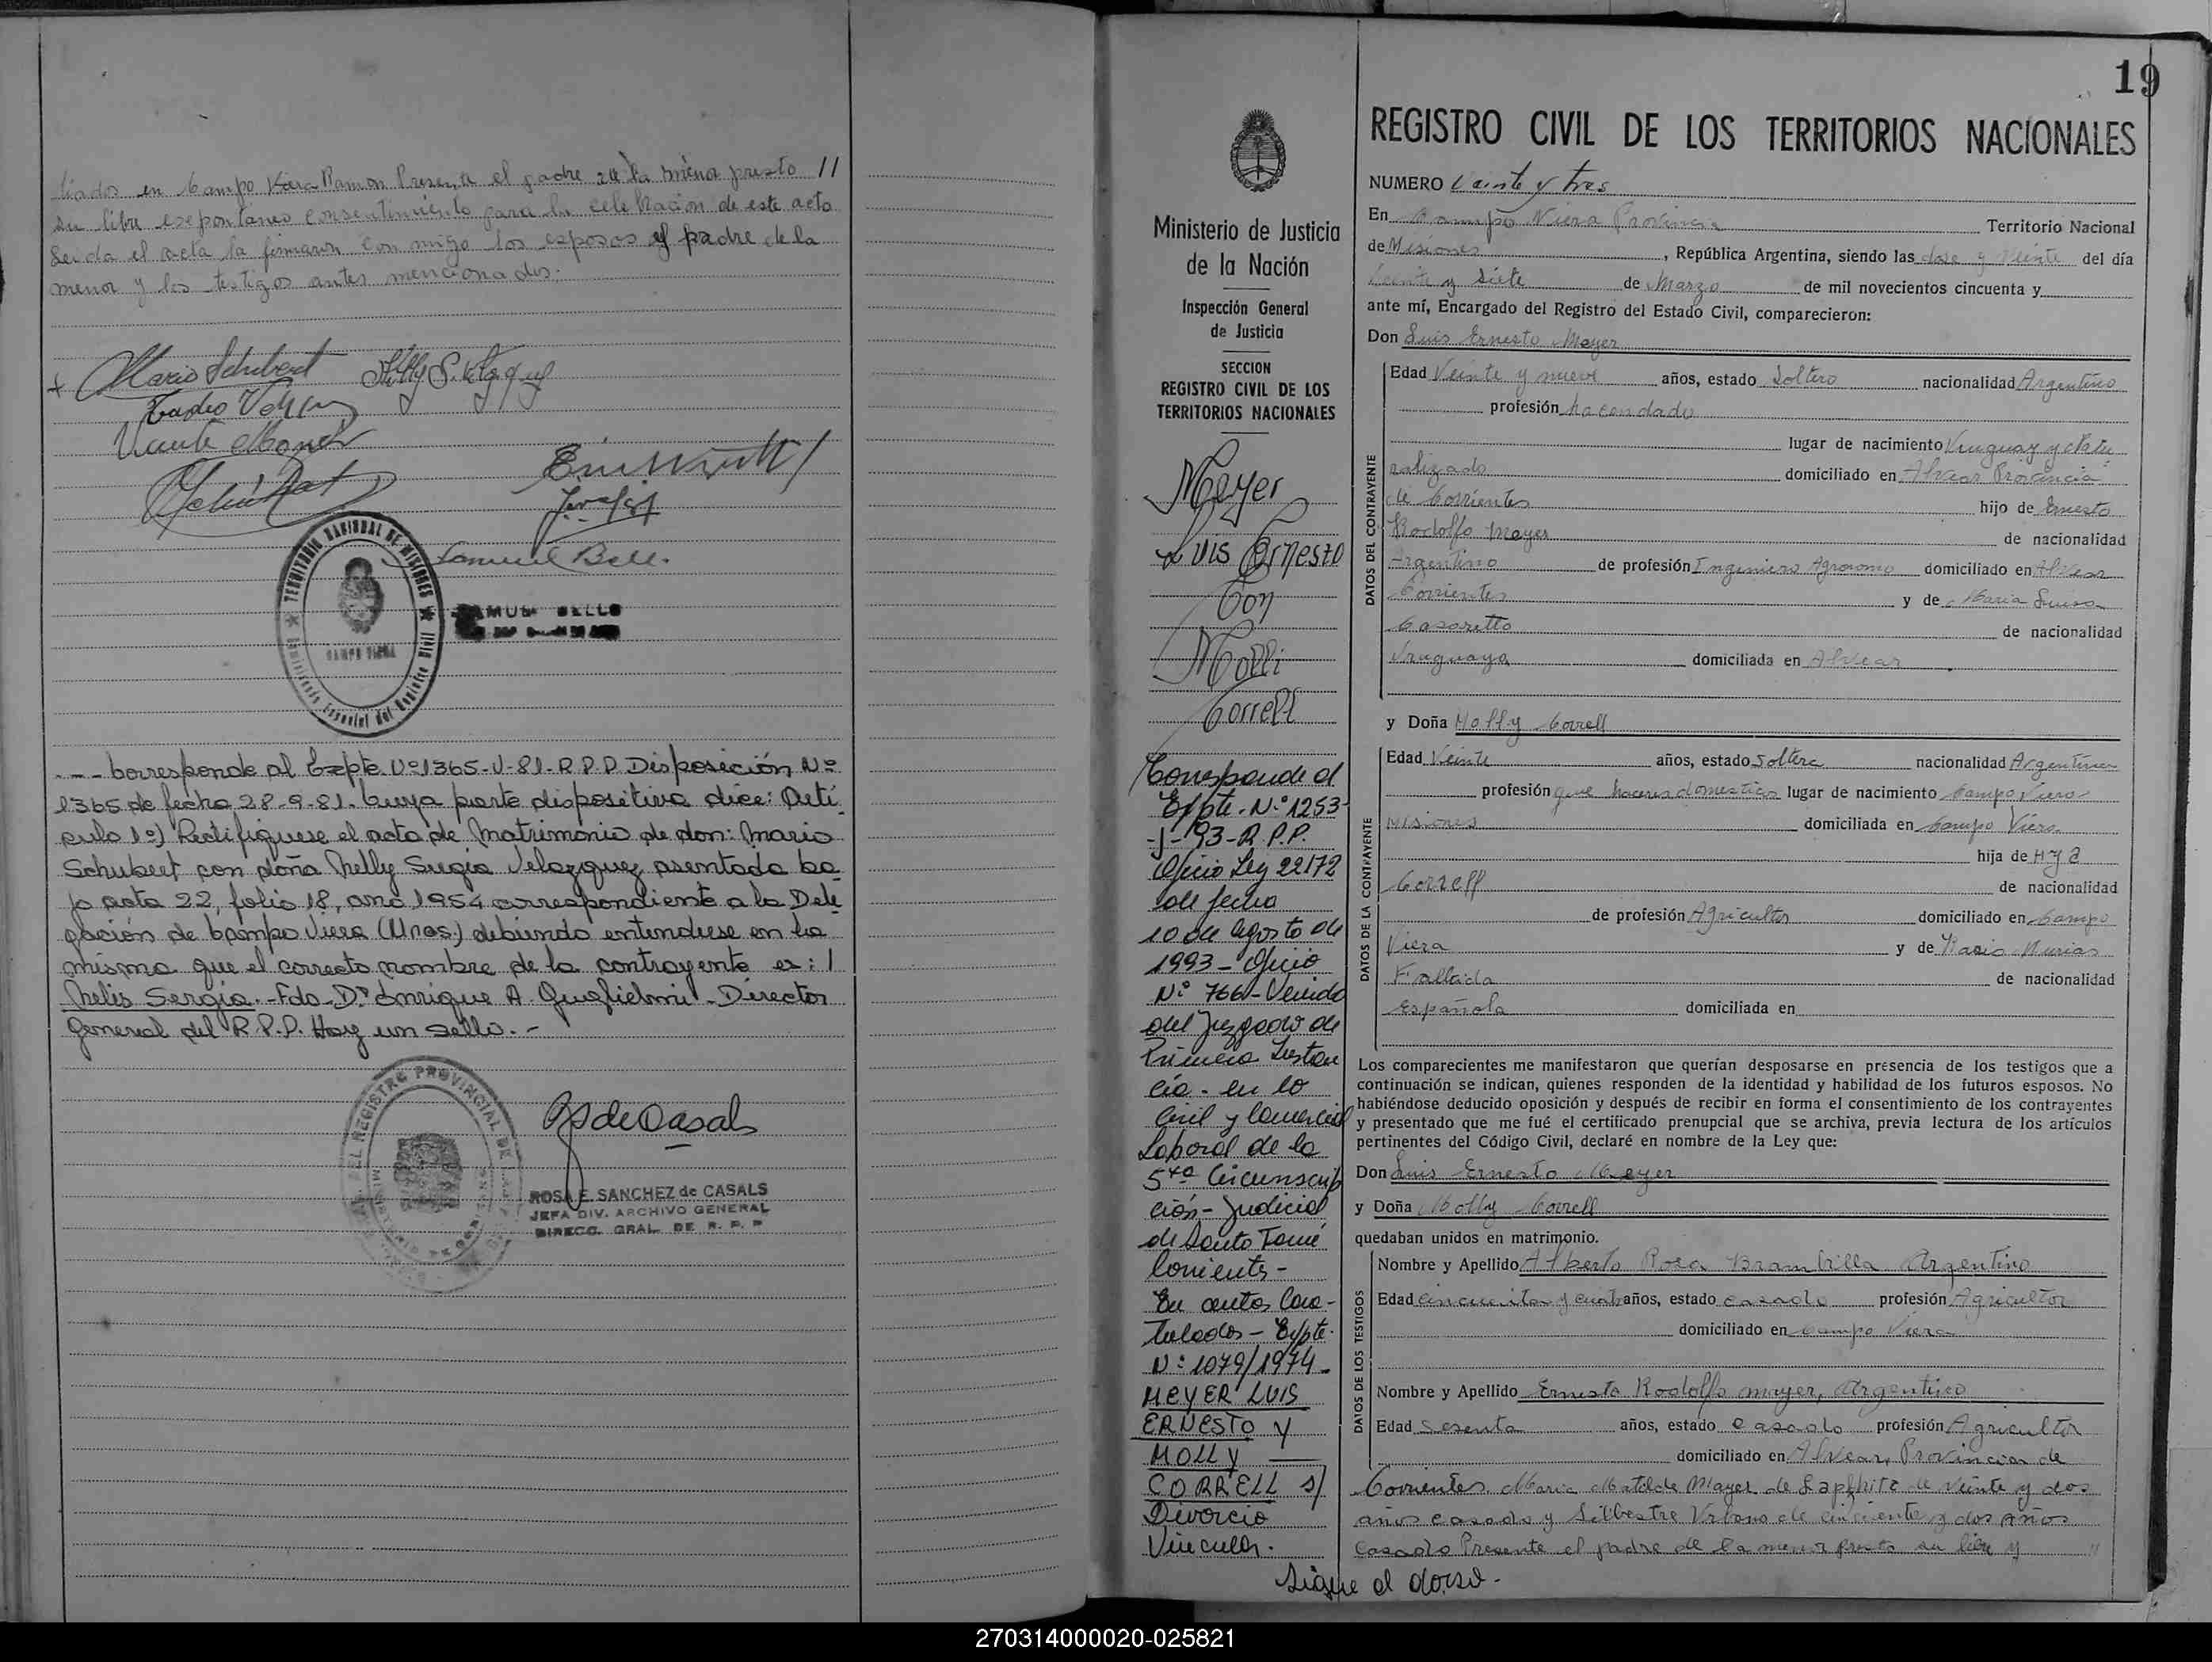 liados en Campo Viera Ramon Presente el padre de la menor presto //
su libre esepontaneo consentimiento para la celebracion de este acto
Leida el acta la firmaron con migo los esposos el padre de la
menor y los testigos antes mencionados.
Mario Schubert
Samuel Bell.
TERRITORIO NACIONAL DE MISIONES
CAMPO VIERA
--- Corresponde al Expte. Nº 1365-V-81-R.P.P. Disposición Nº
1365 de fecha 28-9-81. Cuya parte dispositiva dice: Artí
culo 1º) Rectifiquese el acta de Matrimonio de don: Mario
Schubert con doña Nelly Sugia Velazquez, asentada ba
jo acta 22, folio 18, año 1954 correspondiente a la Dele
gación de Campo Viera (Mnes.) debiendo entenderse en la
misma que el correcto nombre de la contrayente es: /
Nelis Sergia.-Fdo-Dº Enrique A. Guglielmi-Director
General del R.P.P. Hay un sello.-
RS de Casals
ROSA E. SANCHEZ de CASALS
JEFA DIV. ARCHIVO GENERAL
DIRECC. GRAL. DE R. P. P.
19
Ministerio de Justicia
de la Nación
Inspección General
de Justicia
SECCION
REGISTRO CIVIL DE LOS
TERRITORIOS NACIONALES
Meyer
Luis Ernesto
Con
Molli
Correll
Corresponde al
Expte. N.º 1253-
-J-93-R.P.P.
Oficio Ley 22172
de fecha
10 de agosto de
1993 - Oficio
Nº 766 - Venido
del Juzgado de
Primera Instan
cia - en lo
Civil y Comercial
Laboral de la
5ta Circunscrip
ción - Judicial
de Santo Tomé
Corrientes -
En autos Cara-
tulados - Expte.
Nº 1079/1974 -
MEYER LUIS
ERNESTO y
MOLLY
CORRELL s/
Divorcio
Vincular.
Sigue al dorso -
REGISTRO CIVIL DE LOS TERRITORIOS NACIONALES
NUMERO Veinte y tres
En Campo Viera Provincia Territorio Nacional
de Misiones, República Argentina, siendo las dose y Veinte del día
Veinte y Siete de Marzo de mil novecientos cincuenta y
ante mí, Encargado del Registro del Estado Civil, comparecieron:
Don Luis Ernesto Meyer
DATOS DEL CONTRAYENTE
Edad Veinte y nueve años, estado Soltero nacionalidad Argentino
profesión hacendado
lugar de nacimiento Uruguay y Natu
ralizado domiciliado en Alvear Provincia
de Corrientes hijo de Ernesto
Rodolfo Meyer de nacionalidad
Argentino de profesión Ingeniero Agronomo domiciliado en Alvear
Corrientes y de Maria Luisa
Casaretto de nacionalidad
Uruguaya domiciliada en Alvear
y Doña Molly Correll
DATOS DE LA CONTRAYENTE
Edad Veinte años, estado Soltera nacionalidad Argentina
profesión que haceres domesticos lugar de nacimiento Campo Viera
Misiones domiciliada en Campo Viera
hija de
Correll de nacionalidad
de profesión Agricultor domiciliado en Campo
Viera y de
de nacionalidad
Española domiciliada en
Los comparecientes me manifestaron que querían desposarse en presencia de los testigos que a
continuación se indican, quienes responden de la identidad y habilidad de los futuros esposos. No
habiéndose deducido oposición y después de recibir en forma el consentimiento de los contrayentes
y presentado que me fué el certificado prenupcial que se archiva, previa lectura de los artículos
pertinentes del Código Civil, declaré en nombre de la Ley que:
Don Luis Ernesto Meyer
y Doña Molly Correll
quedaban unidos en matrimonio.
DATOS DE LOS TESTIGOS
Nombre y Apellido Alberto Rosa Brambilla Argentino
Edad cincuenta y cuatro años, estado casado profesión Agricultor
domiciliado en Campo Viera
Nombre y Apellido Ernesto Rodolfo mayer, Argentino
Edad Sesenta años, estado Casado profesión Agricultor
domiciliado en Alvear, Provincia de
Corrientes Maria Matilde Mayer de Laphitz de Veinte y dos
años casada y Silbestre Urbano de cincuenta y dos Años
Casado Presente el padre de la menor presto su libre y //
270314000020-025821